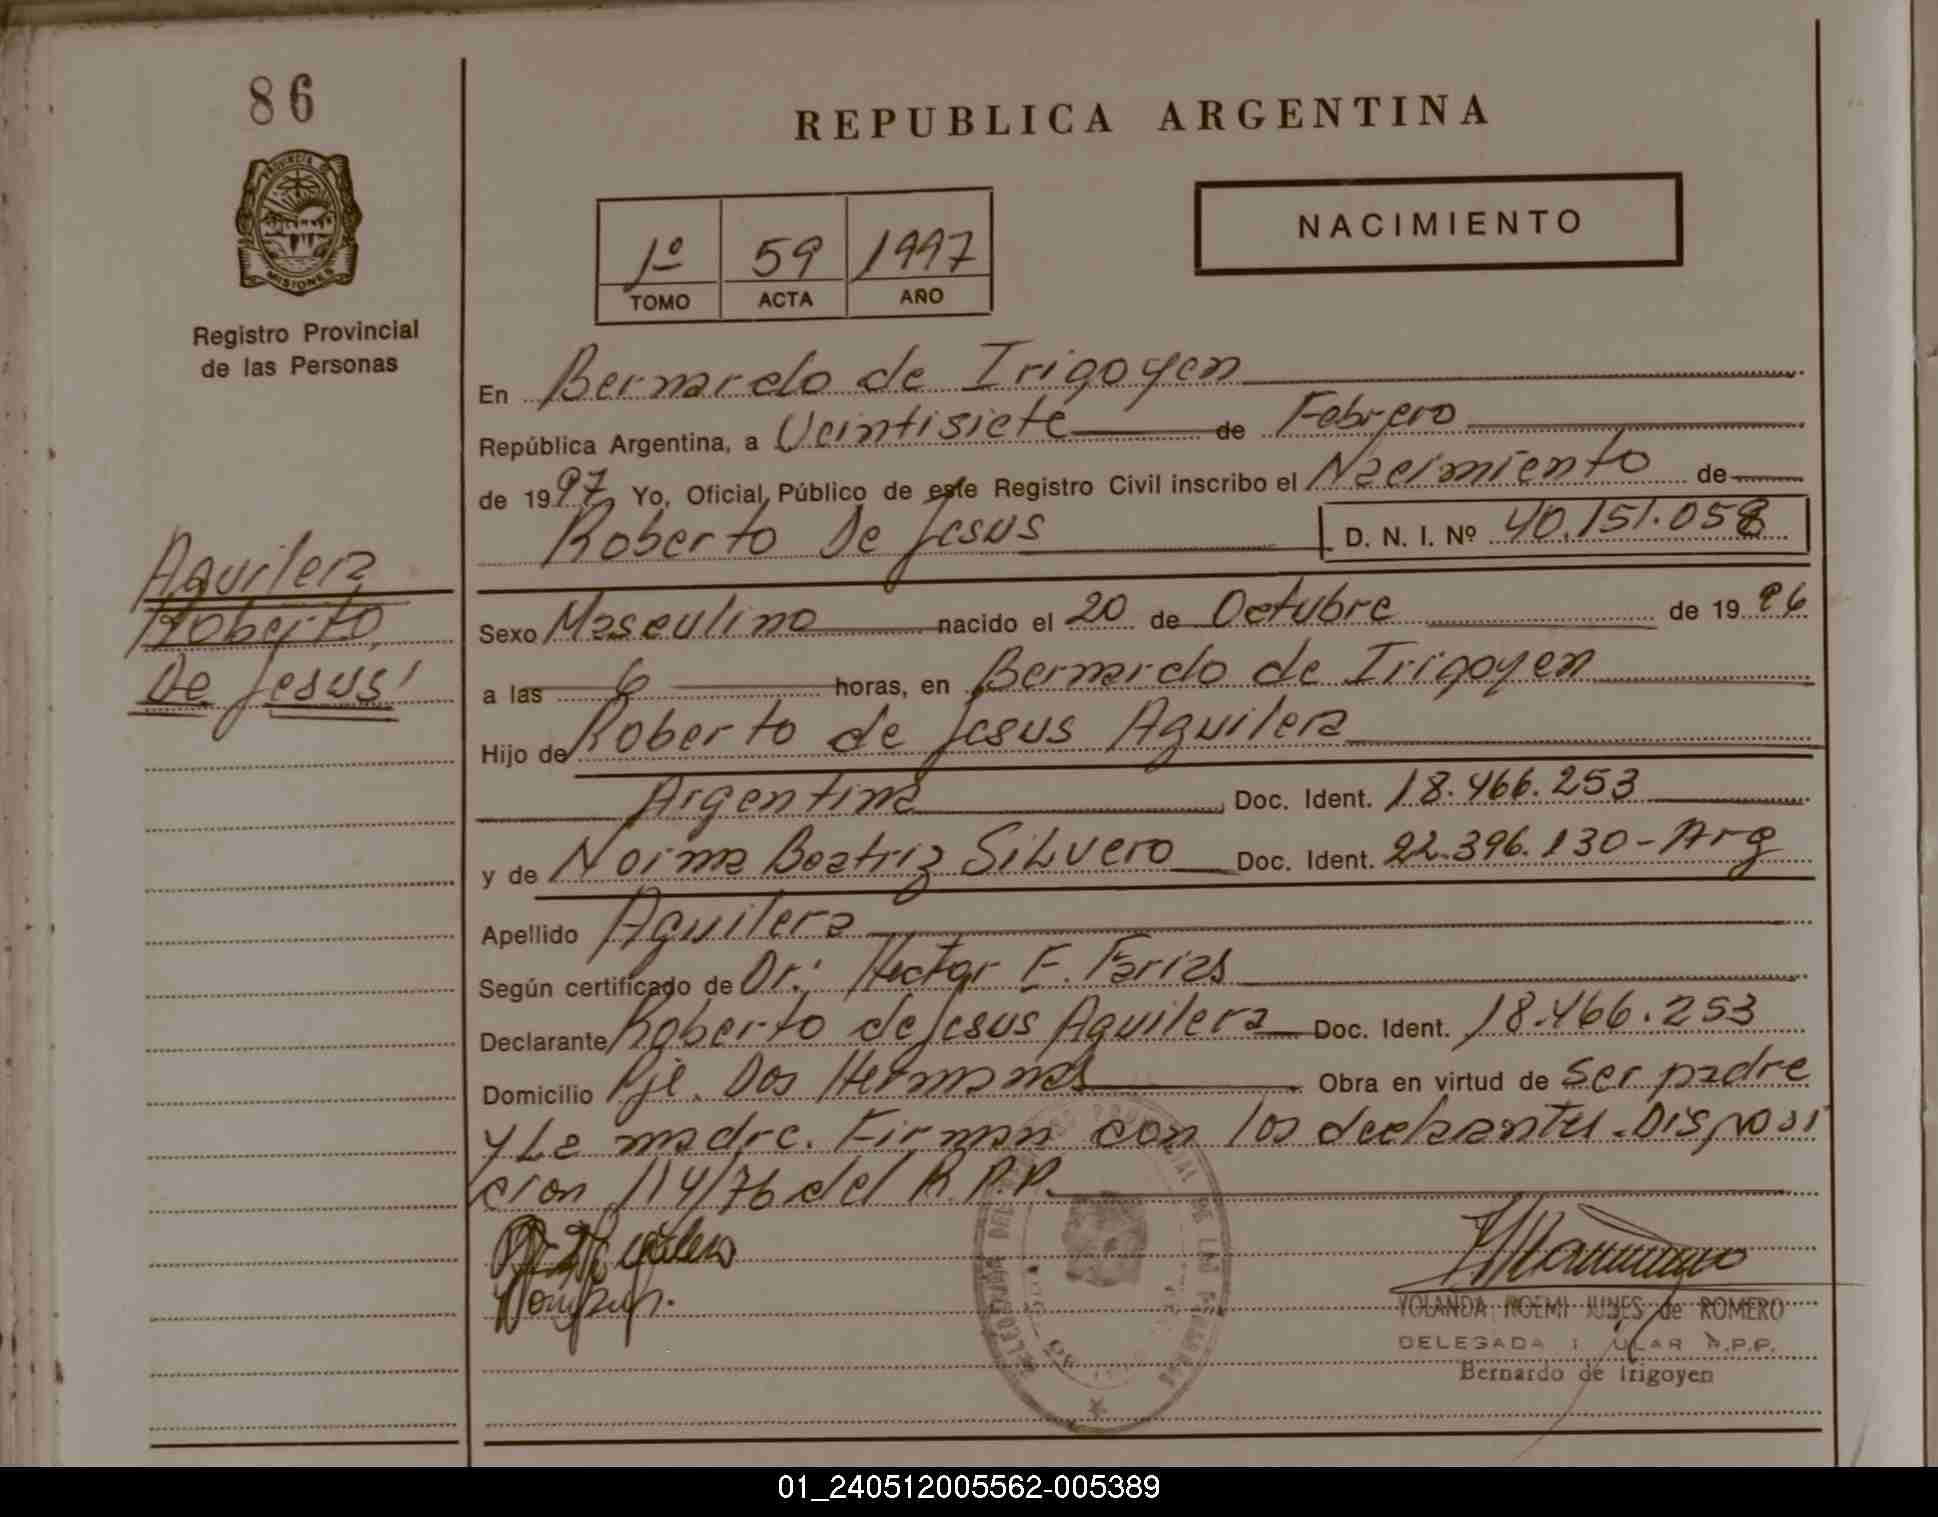 86
PROVINCIA DE
MISIONES
Registro Provincial
de las Personas
Aguilera
Roberto
De Jesus
REPUBLICA ARGENTINA
1º 59 1997
TOMO ACTA AÑO
NACIMIENTO
En Bernardo de Irigoyen
República Argentina, a Veintisiete de Febrero
de 1997 Yo, Oficial Público de este Registro Civil inscribo el Nacimiento de
Roberto De Jesus D. N. I. Nº 40.151.058
Sexo Masculino nacido el 20 de Octubre de 1996
a las 6 horas, en Bernardo de Irigoyen
Hijo de Roberto de Jesus Aguilera
Argentina Doc. Ident. 18.466.253
y de Norma Beatriz SiLvero Doc. Ident. 22.396.130-Arg
Apellido Aguilera
Según certificado de Dr: Hector E. Farias
Declarante Roberto de Jesus Aguilera Doc. Ident. 18.466.253
Domicilio Pje. Dos Hermanas Obra en virtud de ser padre
y La madre. Firman con los declarantes. Disposi
cion 114/76 del R.P.P.
YOLANDA NOEMI JUNES de ROMERO
DELEGADA R.P.P.
Bernardo de Irigoyen
01_240512005562-005389